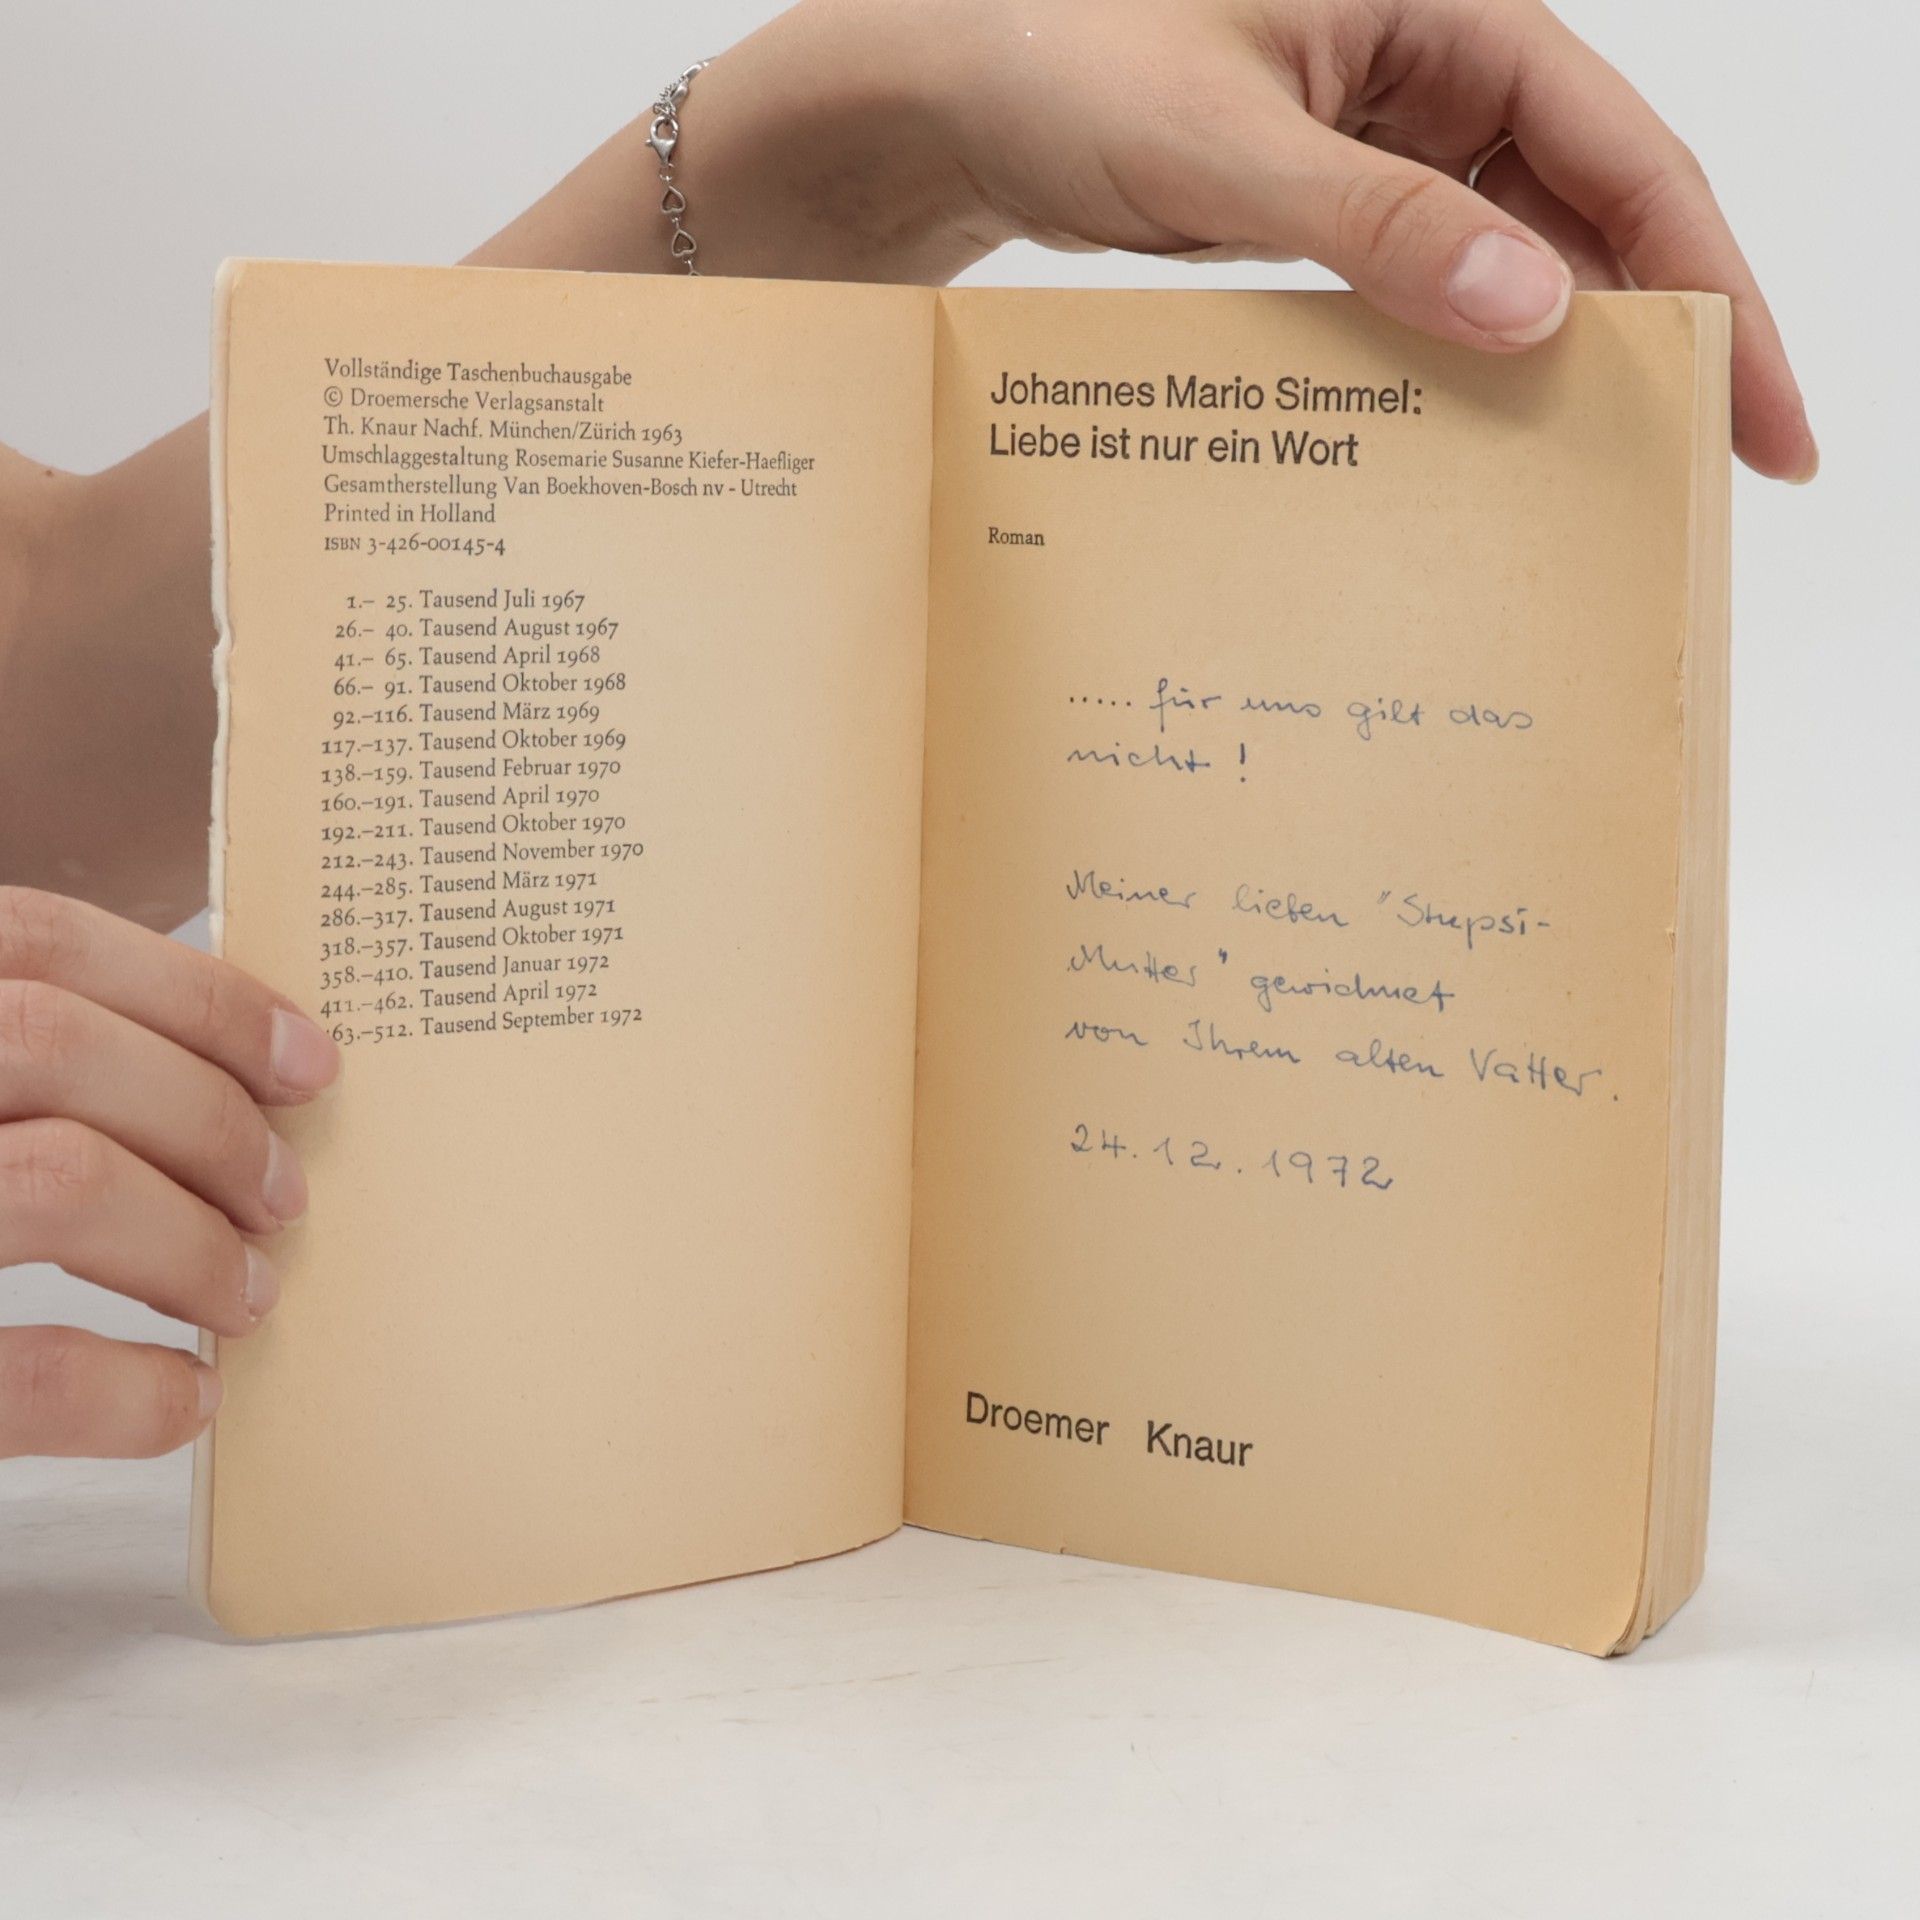 Vollständige Taschenbuchausgabe
© Droemersche Verlagsanstalt
Th. Knaur Nachf. München/Zürich 1963
Umschlaggestaltung Rosemarie Susanne Kiefer-Haefliger
Gesamtherstellung Van Boekhoven-Bosch nv - Utrecht
Printed in Holland
ISBN 3-426-00145-4
1.– 25. Tausend Juli 1967
26.– 40. Tausend August 1967
41.– 65. Tausend April 1968
66.– 91. Tausend Oktober 1968
92.–116. Tausend März 1969
117.–137. Tausend Oktober 1969
138.–159. Tausend Februar 1970
160.–191. Tausend April 1970
192.–211. Tausend Oktober 1970
212.–243. Tausend November 1970
244.–285. Tausend März 1971
286.–317. Tausend August 1971
318.–357. Tausend Oktober 1971
358.–410. Tausend Januar 1972
411.–462. Tausend April 1972
63.–512. Tausend September 1972
Johannes Mario Simmel:
Liebe ist nur ein Wort
Roman
..... für uns gilt das
nicht !
Meiner lieben "Stupsi-
Mutter" gewidmet
von Ihrem alten Vatter.
24.12.1972
Droemer Knaur